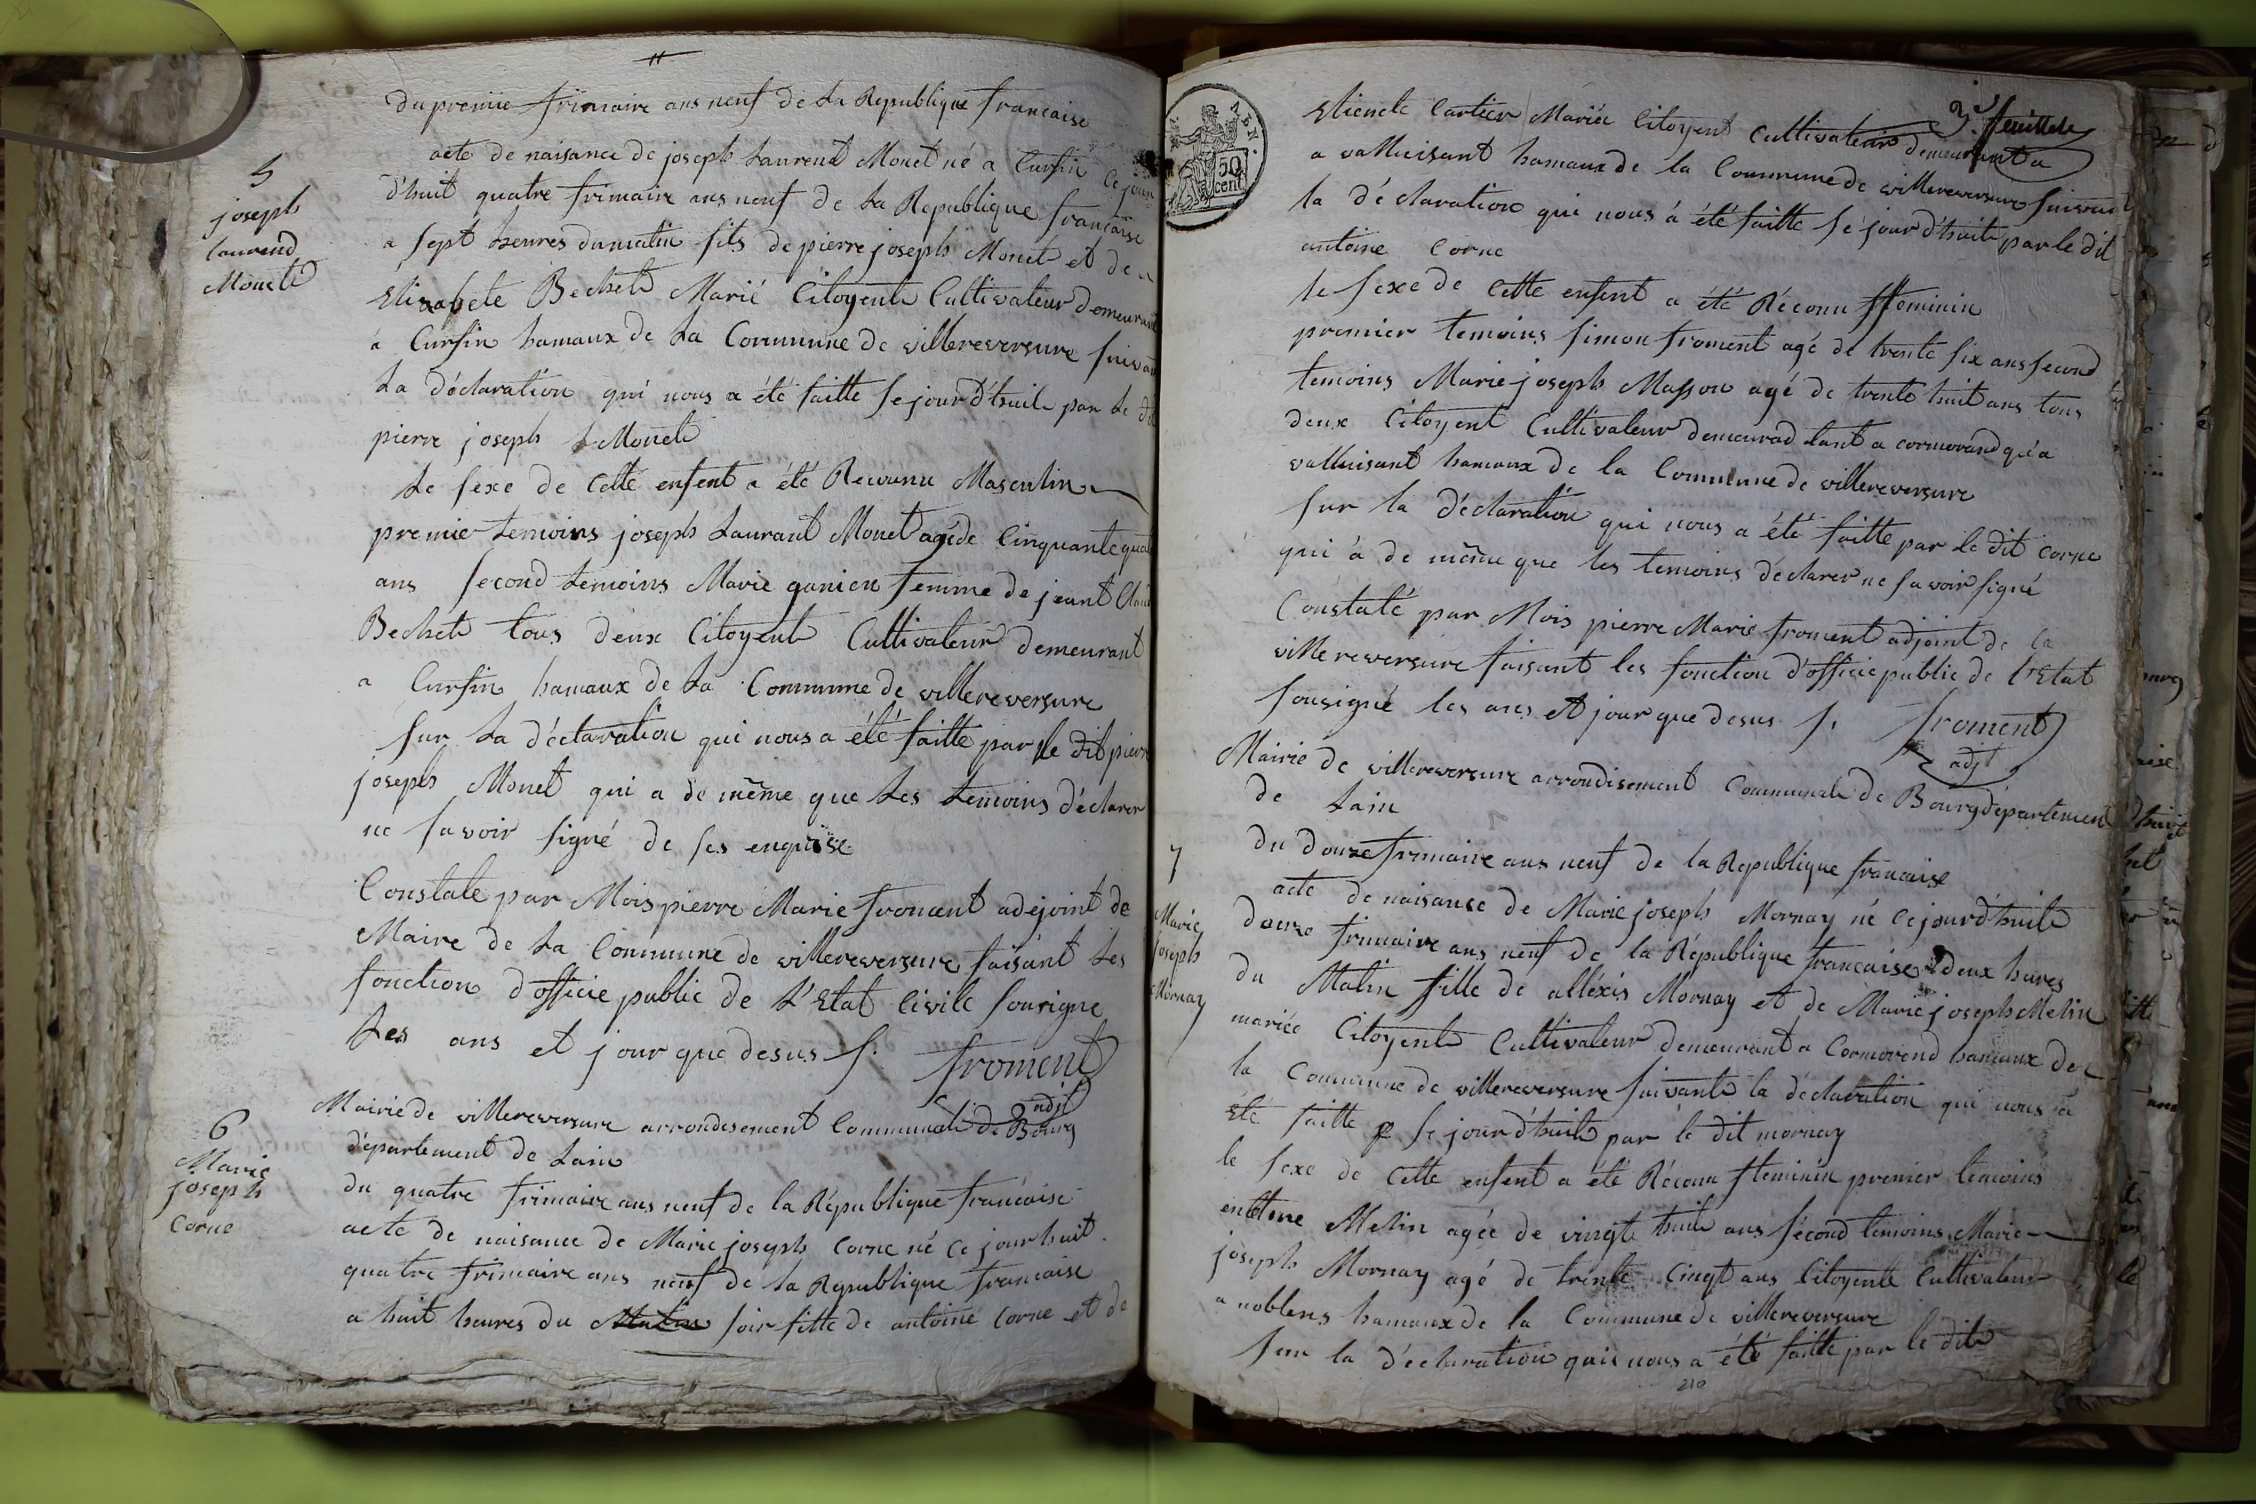 du premie frimaire ans neuf de La Republique francaise
5
joseph
laurend
Monete
acte de naisance de joseph Laurent Monet né a Curfin Ce jour
d'huit quatre frimaire ans neuf de La Republique francaise
a sept heures du matin fils de pierre joseph Monet et de
Elizabete Bechet Marié Citoyent Cultivateur demeurant
a Curfin hamaux de La Commune de villereversure suivan
La déclaration qui nous a été faitte se jour d'huit par Le dit
pierre joseph Monet
Le sexe de Cette enfent a été Reconnu Masculin
premie temoins joseph Laurant Monet agé de Cinquante quat
ans second temoins Marie ganien femme de jeant Claud
Bechet tous deux Citoyent Cultivateur demeurant
a Curfin hamaux de La Commune de villereversure
sur La déclaration qui nous a été faitte par le dit pierre
joseph Monet qui a de même que Les temoins déclarer
ne savoir signé de ses enquise
Constate par Mois pierre Marie froment adejoint de
Maire de La Commune de villereversure faisant Les
fonction d'officie public de L'Etat Civile sousigne
Les ans et jour que desus f: froment
adjt
6
Marie
joseph
Corne
Mairie de villereversure arrondisement Communale de Bourg
département de Lain
du quatre frimaire ans neuf de la République francaise
acte de naisance de Marie joseph Corne né Ce jour huit
quatre frimaire ans neuf de la République francaise
a huit heures du Matin soir fille de antoine Corne et de
3e feuillete
AEN.
50
cent
Etienete Cartier Mariée Citoyent Cultivateur demeurant a
a valluisant hamaux de la Commune de villereversure suivant
la déclaration qui nous á été faitte se jour d'huit par le dit
antoine Corne
le sexe de Cette enfent a été Réconu ffeminin
premier temoins simon froment agé de trente six ans second
temoins Marie joseph Masson agé de trente huit ans tous
deux Citoyent Cultivateur demeurad tant a cormorand qu'a
valluisant hamaux de la Commune de villereversure
sur la déclaration qui nous a été faitte par le dit corne
qui á de même que les temoins déclarer ne savoir signé
Constaté par Mois pierre Marie froment adjoint de la
villereversure faisant les fonction d'officie public de l'Etat
sousigné les ans et jour que desus f: froment
adjt
Mairie de villereversure arrondisement Communale de Bourg département
de Lain
7
Marie
joseph
Mornay
du douze frimaire ans neuf de la République francaise
acte de naisance de Marie joseph Mornay né Ce jourd'huit
douze frimaire ans neuf de la République francaise deux hures
du Matin fille de alléxis Mornay et de Marie joseph Melin
mariée Citoyent Cultivateur demeurant a Cormorend hamaux de
la Commune de villereversure suivante la déclaration qui nous á
été faitte se jour d'huit par le dit mornay
le sexe de Cette enfent a été Réconu ffeminin premier temoins
Melin agée de vingt huit ans second temoins Marie
joseph Mornay agé de trente Cinqt ans Citoyent Cultivateur
a noblens hamaux de la Commune de villereversure
sur la déclaration qui nous a été faitte par le dit
210